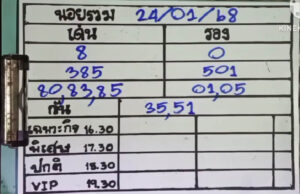 ฮอยรวม 24/01/68
เด่น รอง
8 0
385 501
80,83,85 01,05
กัน 35,51
เฉพาะกิจ 16.30
พิเศษ 17.30
ปกติ 18.30
VIP 19.30